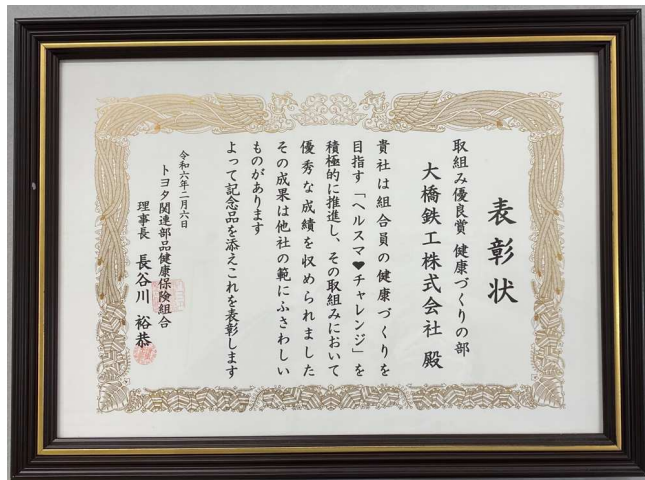 表彰状
取組み優良賞 健康づくりの部
大橋鉄工株式会社 殿
貴社は組合員の健康づくりを
目指す「ヘルスマ♥チャレンジ」を
積極的に推進し、その取組みにおいて
優秀な成績を収められました
その成果は他社の範にふさわしい
ものがあります
よって記念品を添えこれを表彰します
令和六年二月六日
トヨタ関連部品健康保険組合
理事長 長谷川 裕恭